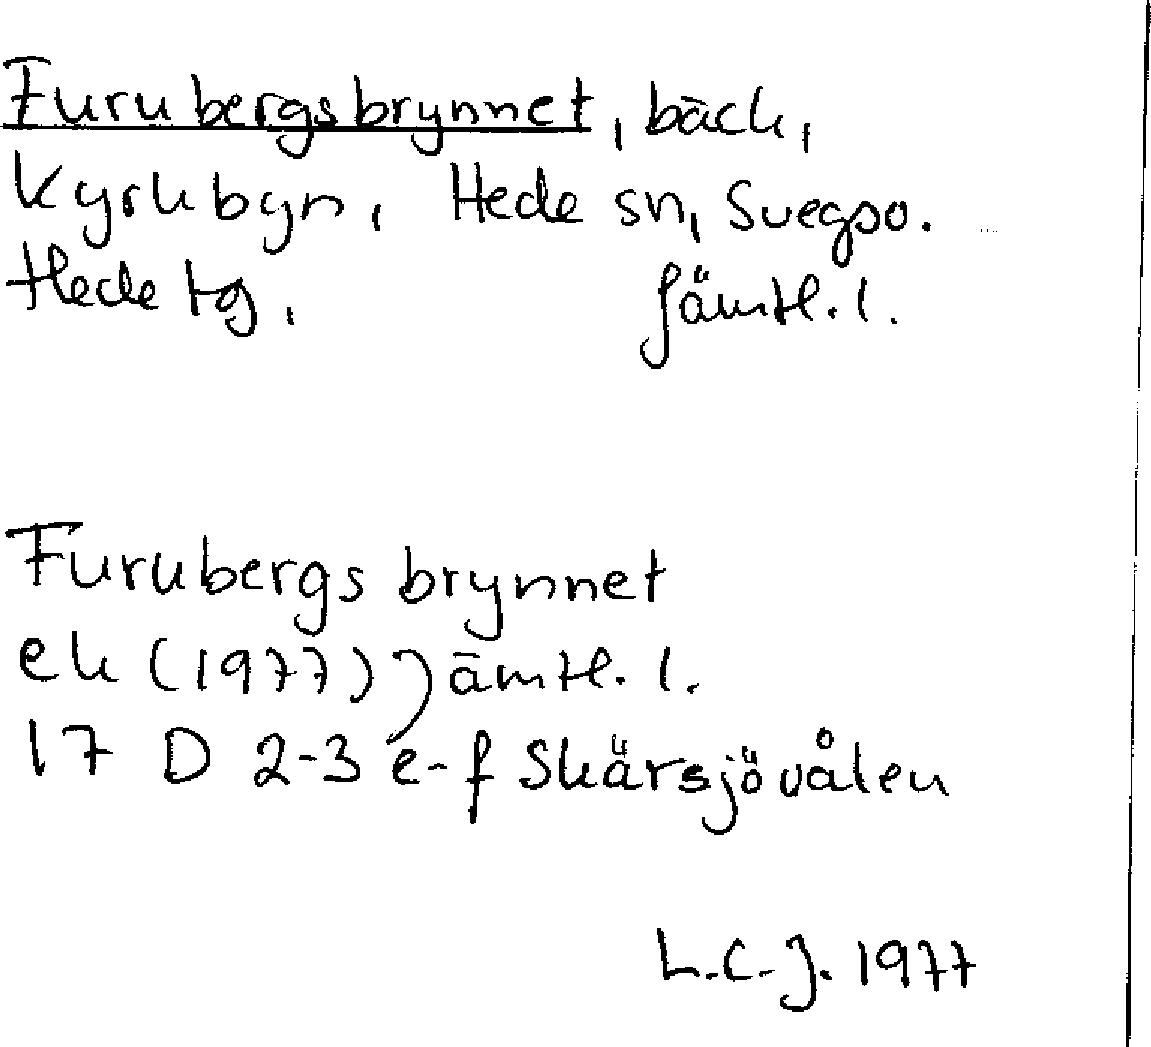 Furubergsbrynnet, bäck,
Kyrkbyn, Hede sn, Svegso.
Hede tg, Jämtl. l.
Furubergsbrynnet
ek (1977) Jämtl. l.
17 D 2-3 e-f Skärsjövålen
L.C.J. 1977